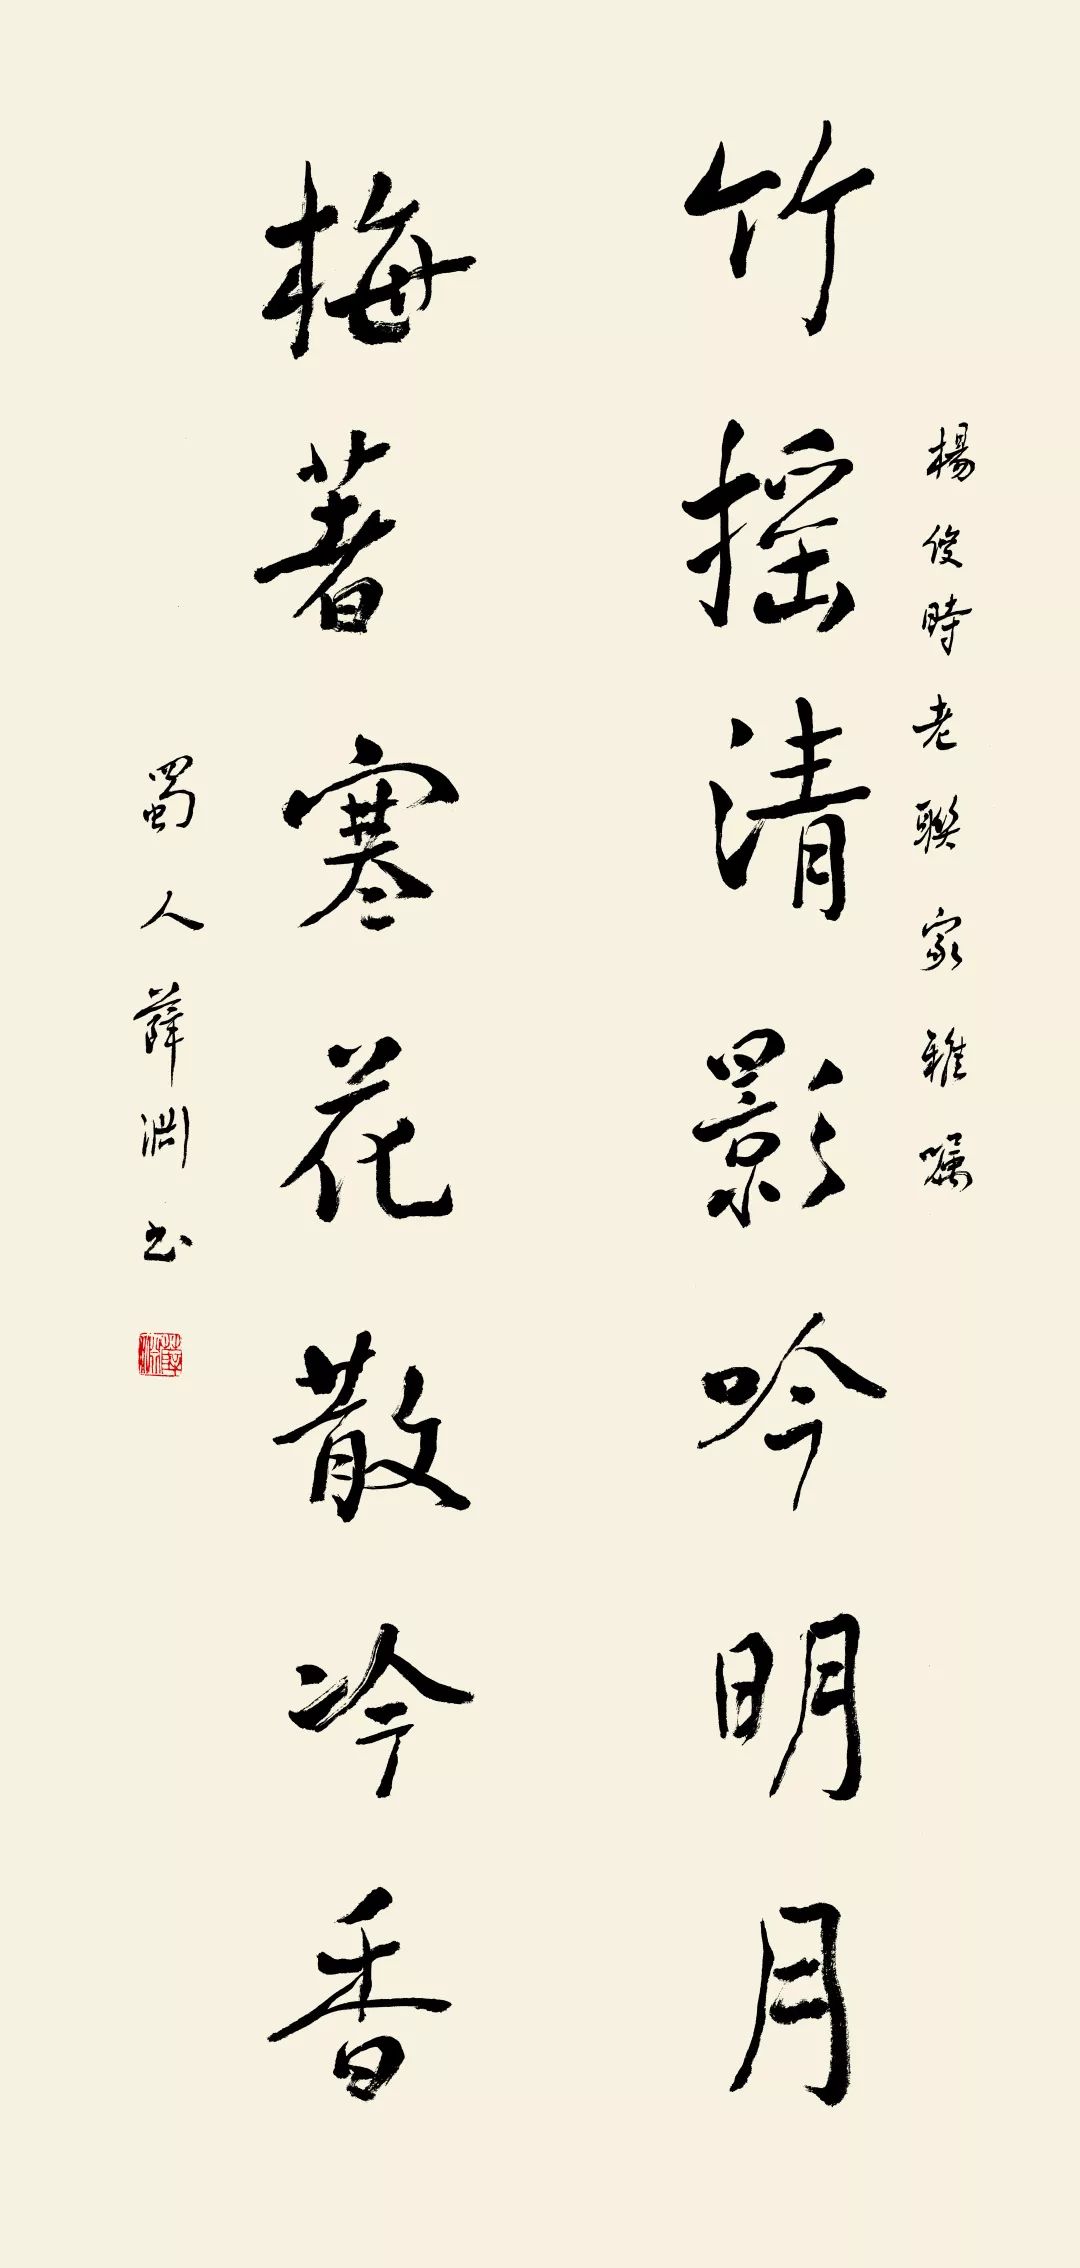 楊俊時老聯家雅嘱
竹摇清影吟明月
梅著寒花散冷香
蜀人薛渊书
薛渊